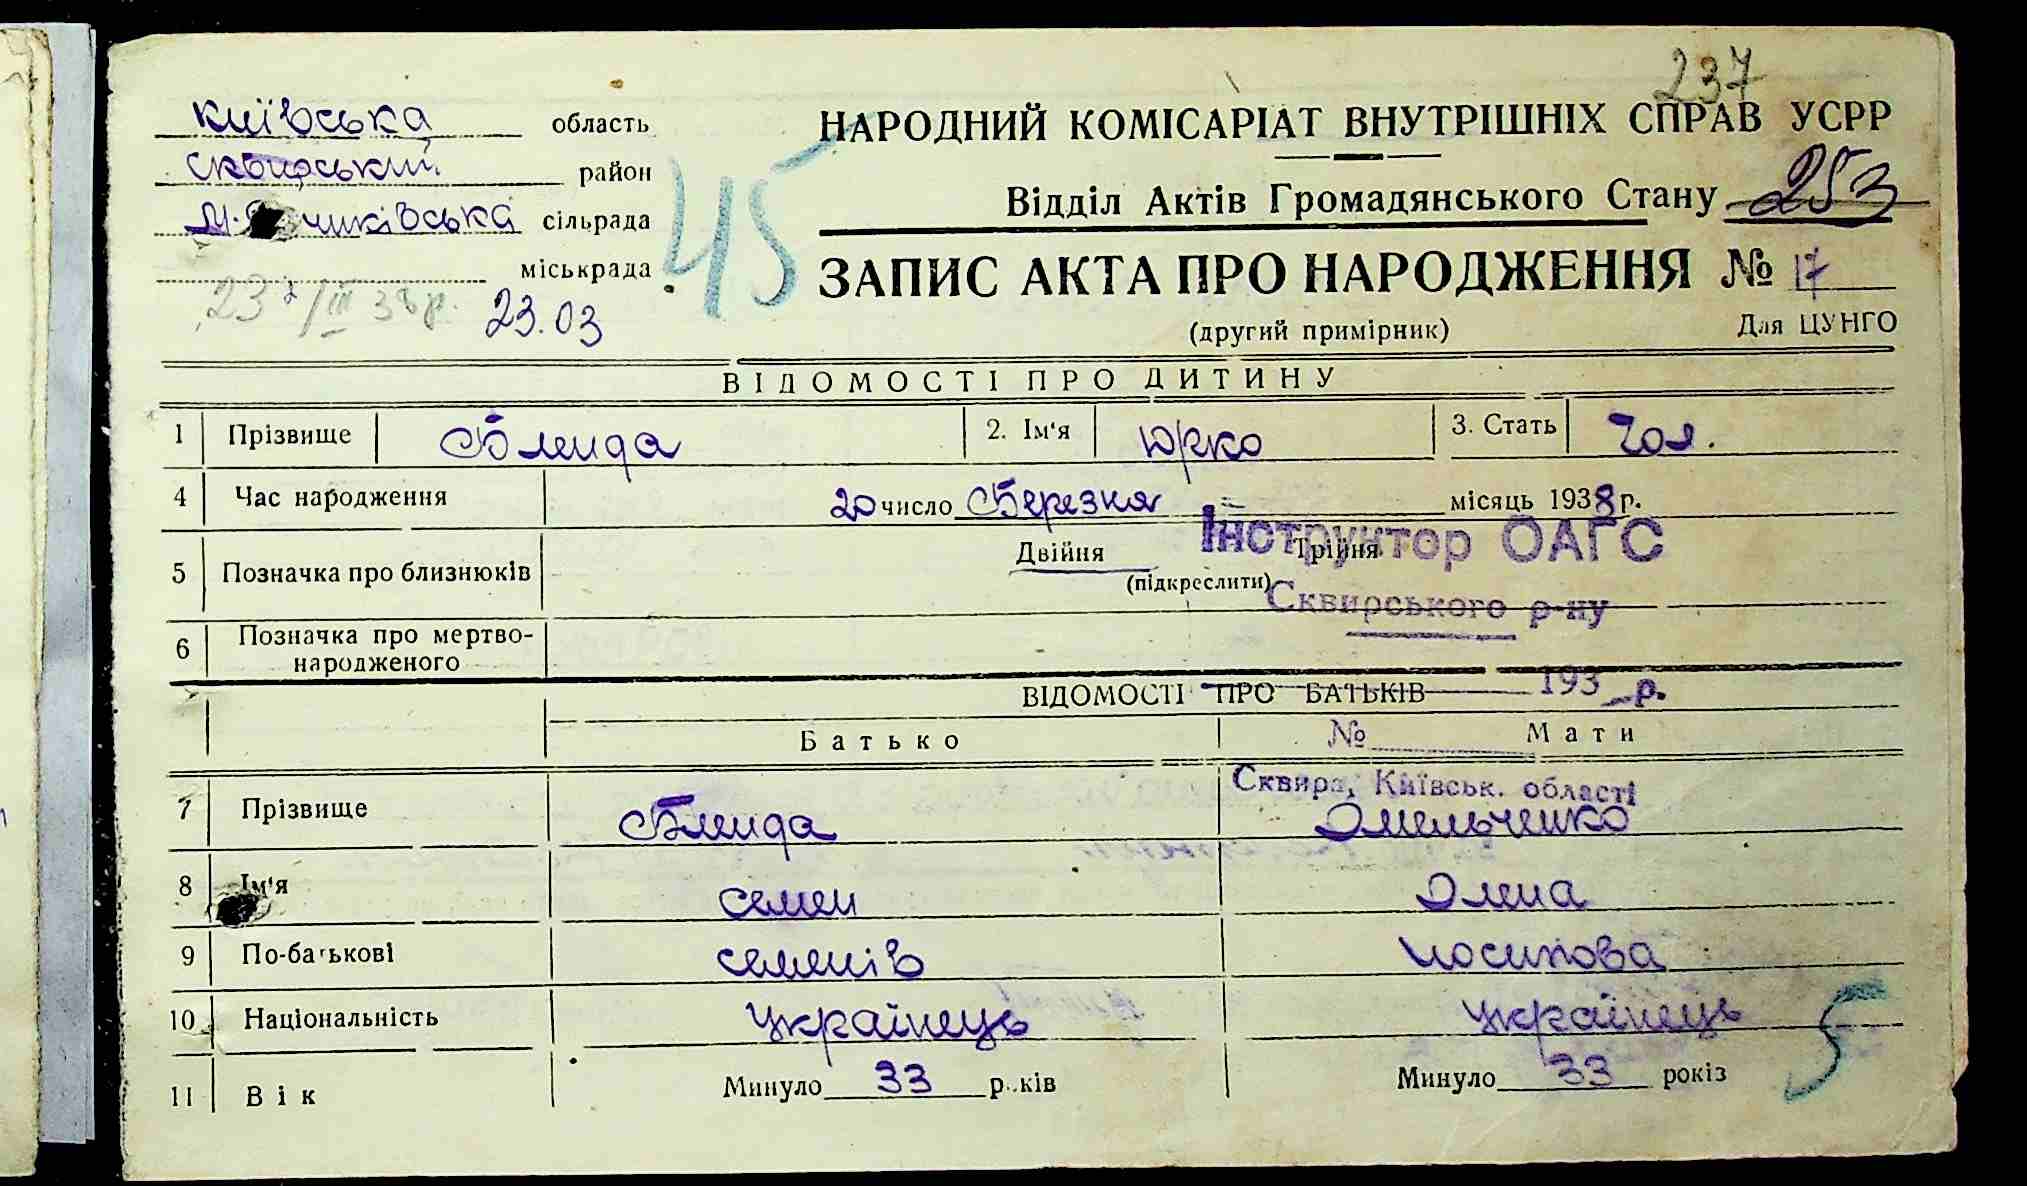 237
Київська область
Сквирський район
сільрада
міськрада
23/III 38 р. 23.03
45
НАРОДНИЙ КОМІСАРІАТ ВНУТРІШНІХ СПРАВ УСРР
Відділ Актів Громадянського Стану 253
ЗАПИС АКТА ПРО НАРОДЖЕННЯ № 17
(другий примірник) Для ЦУНГО
ВІДОМОСТІ ПРО ДИТИНУ
1 Прізвище Бленда 2. Ім'я Юрко 3. Стать Чол.
4 Час народження 20 число Березня місяць 1938 р.
Інструктор ОАГС
5 Позначка про близнюків Двійня Трійня
(підкреслити)
Сквирського р-ну
6 Позначка про мертво-
народженого
ВІДОМОСТІ ПРО БАТЬКІВ
193 р.
Батько Мати
№
Сквира, Київськ. області
7 Прізвище Бленда Омельченко
8 Ім'я Семен Олена
9 По-батькові Семенів Йосипова
10 Національність Українець Українець
5
11 Вік Минуло 33 років Минуло 33 років